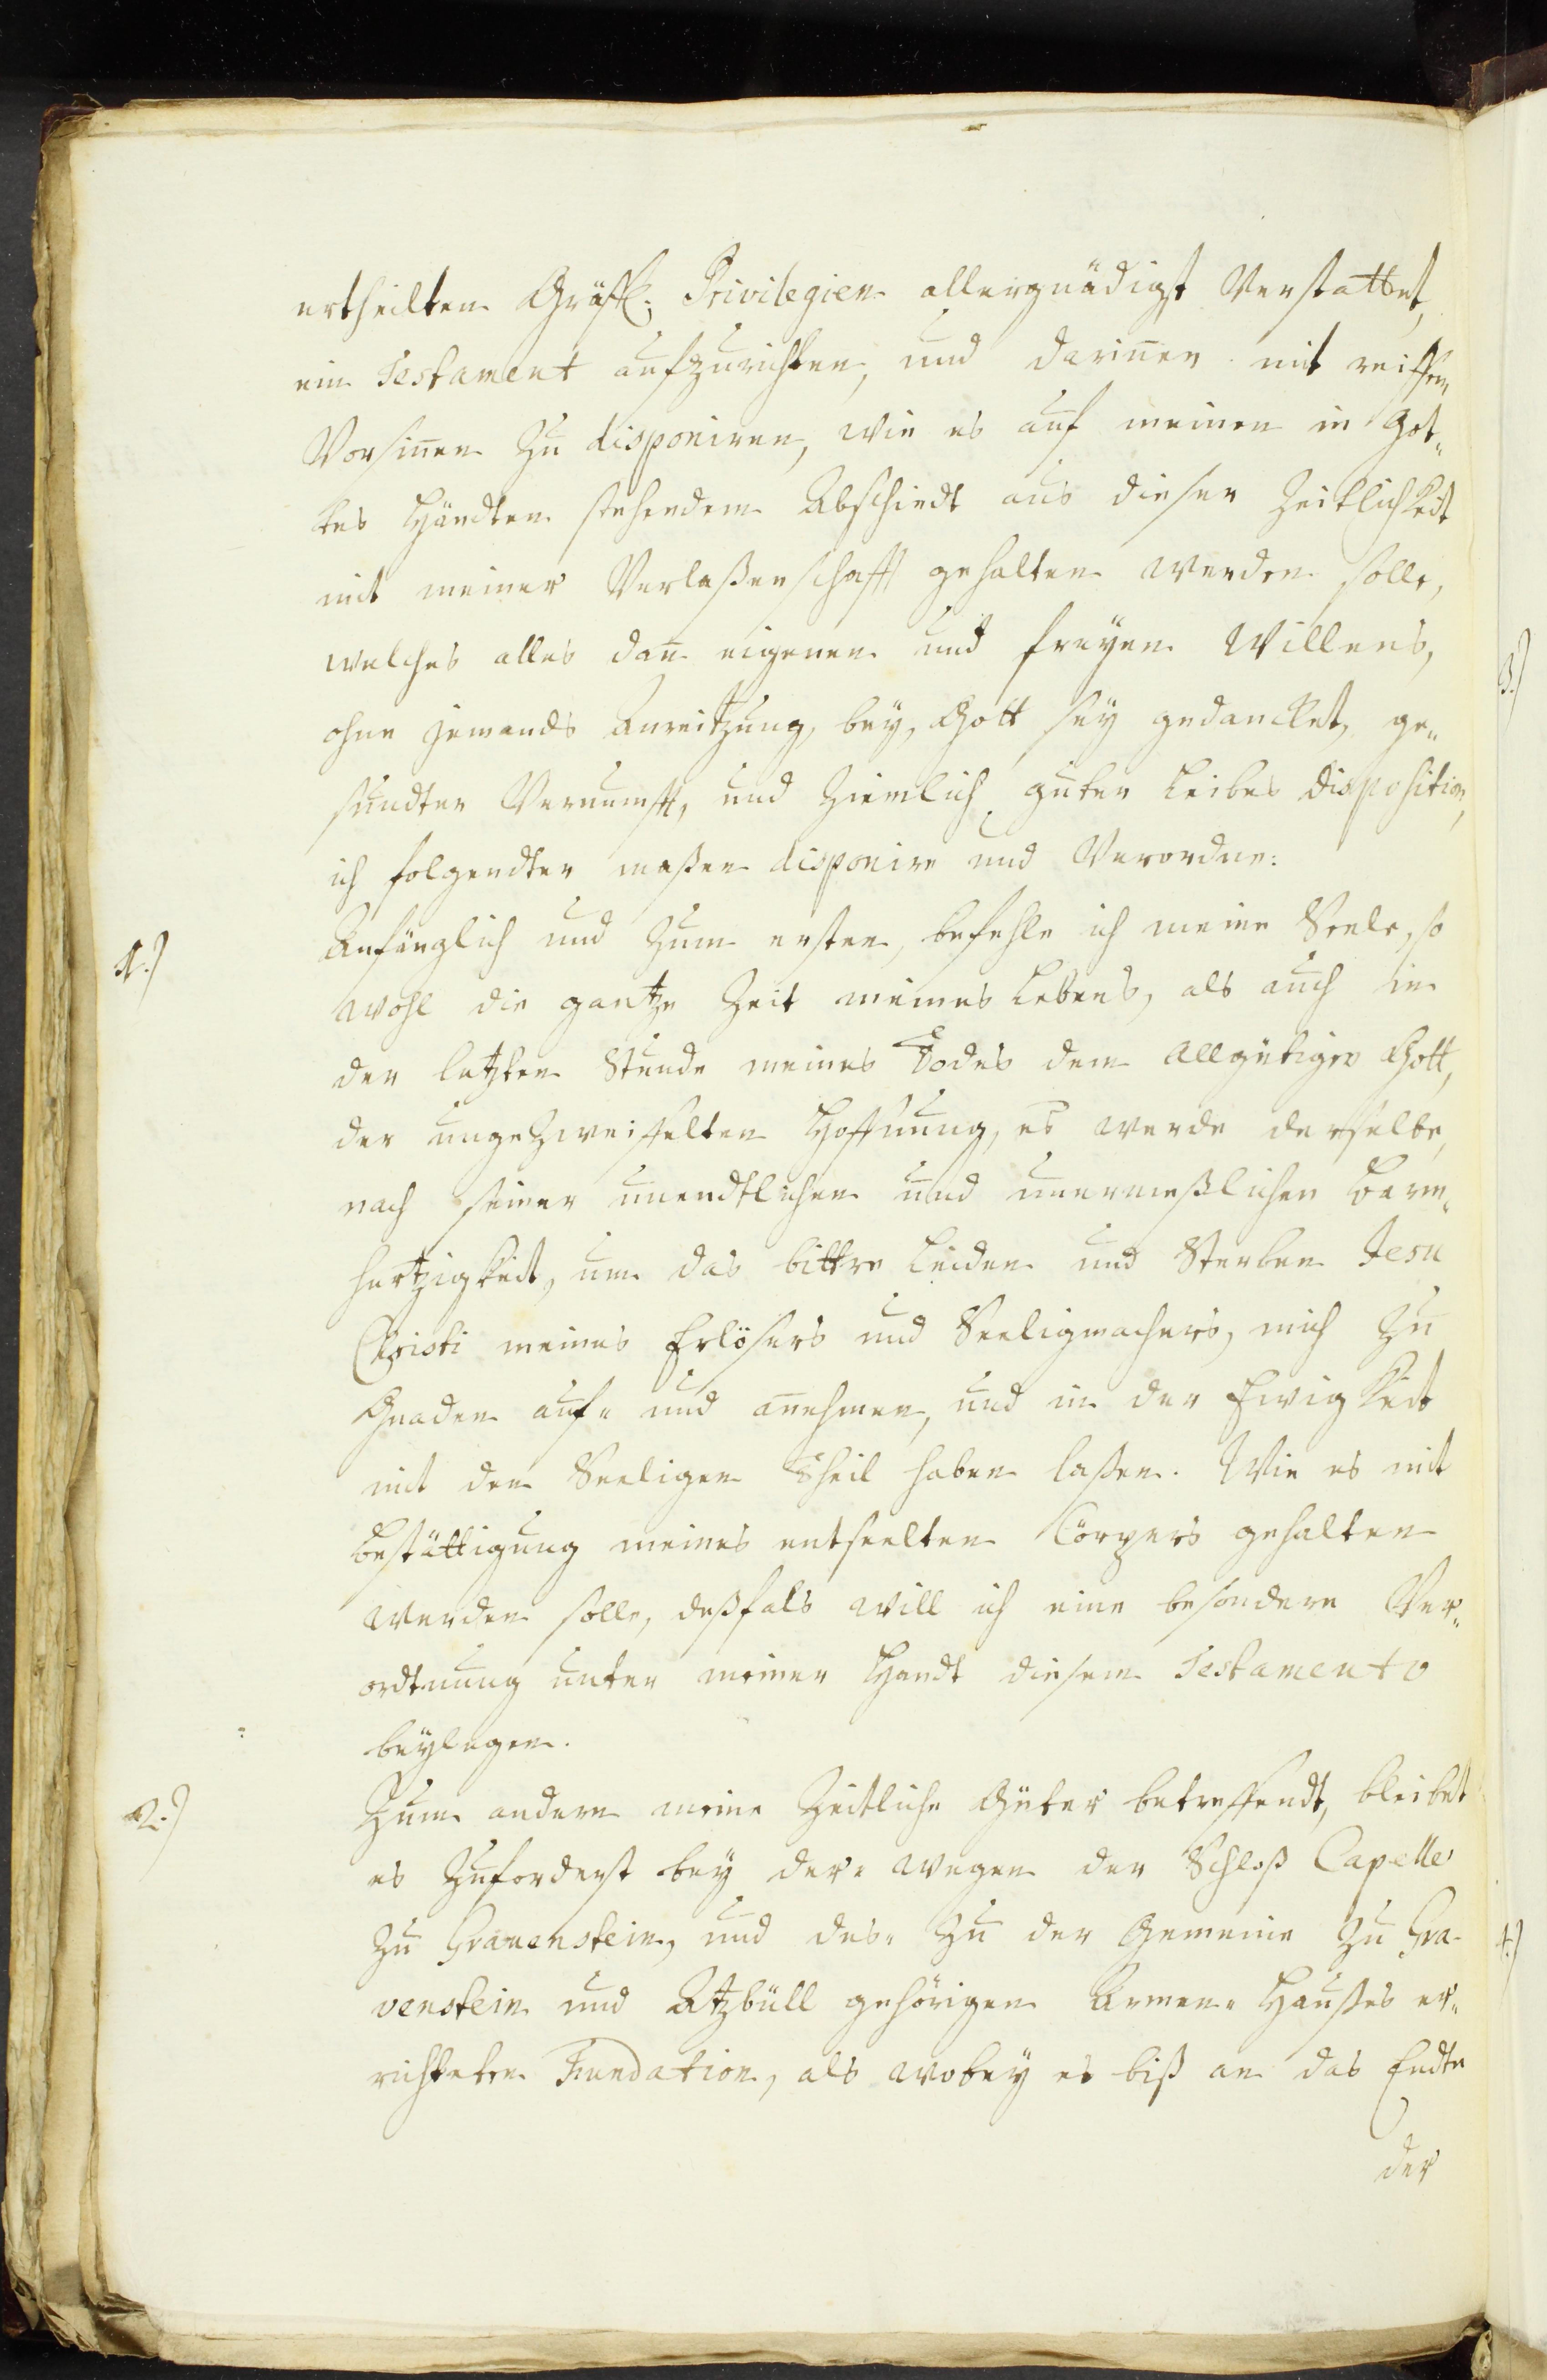 ertheilten Gräffl. Privilegien allergnädigst Verstattet,
ein Testament aufzurichten, und darinnen mit reiffem
Vorsinnen zu disponiren, wie es auf meinen in Got„
tes Händten stehendem Abschiedt aus dieser Zeitlichkeit
mit meiner Verlaßenschafft gehalten werden solle,
welches alles dan̄ eigenen und freÿen Willens,
ohne jemands Anreitzung, beÿ, Gott seÿ gedancket, ge„
sundter Vernunfft, und ziemlich guter Leibes disposition,
ich folgendter maßen disponire und Verordne:
1.) Anfänglich und zum ersten, befehle ich meine Seele, so
wohl die gantze Zeit meines Lebens, als auch in
der letzten Stunde meines Todes dem allgütigen Gott,
der ungezweiffelten Hoffnung, es werde derselbe,
nach seiner unendtlichen und unermeßlichen Barm„
hertzigkeit, um das bittre Leiden und Sterben Jesu
Christi meines Erlösers und Seeligmachers, mich zu
Gnaden auf„ und an̄ehmen, und in der Ewigkeit
mit den Seeligen Theil haben laßen. Wie es mit
Bestättigung meines entseelten Cörpers gehalten
werden solle, deßfals will ich eine besondere Ver„
ordtnung unter meiner Handt diesem Testamento
beÿlegen.
2.) Zum andern meine Zeitliche Güter betreffendt, bleibet
es zuforderst beÿ der„ wegen der Schloß Capelle
zu Gravenstein, und des„ zu der Gemeine zu Gra„
venstein und Atzbüll gehörigen Armen„ Haußes er„
richteten Fundation, als wobeÿ es biß an das Endte
der
3.)
4.)